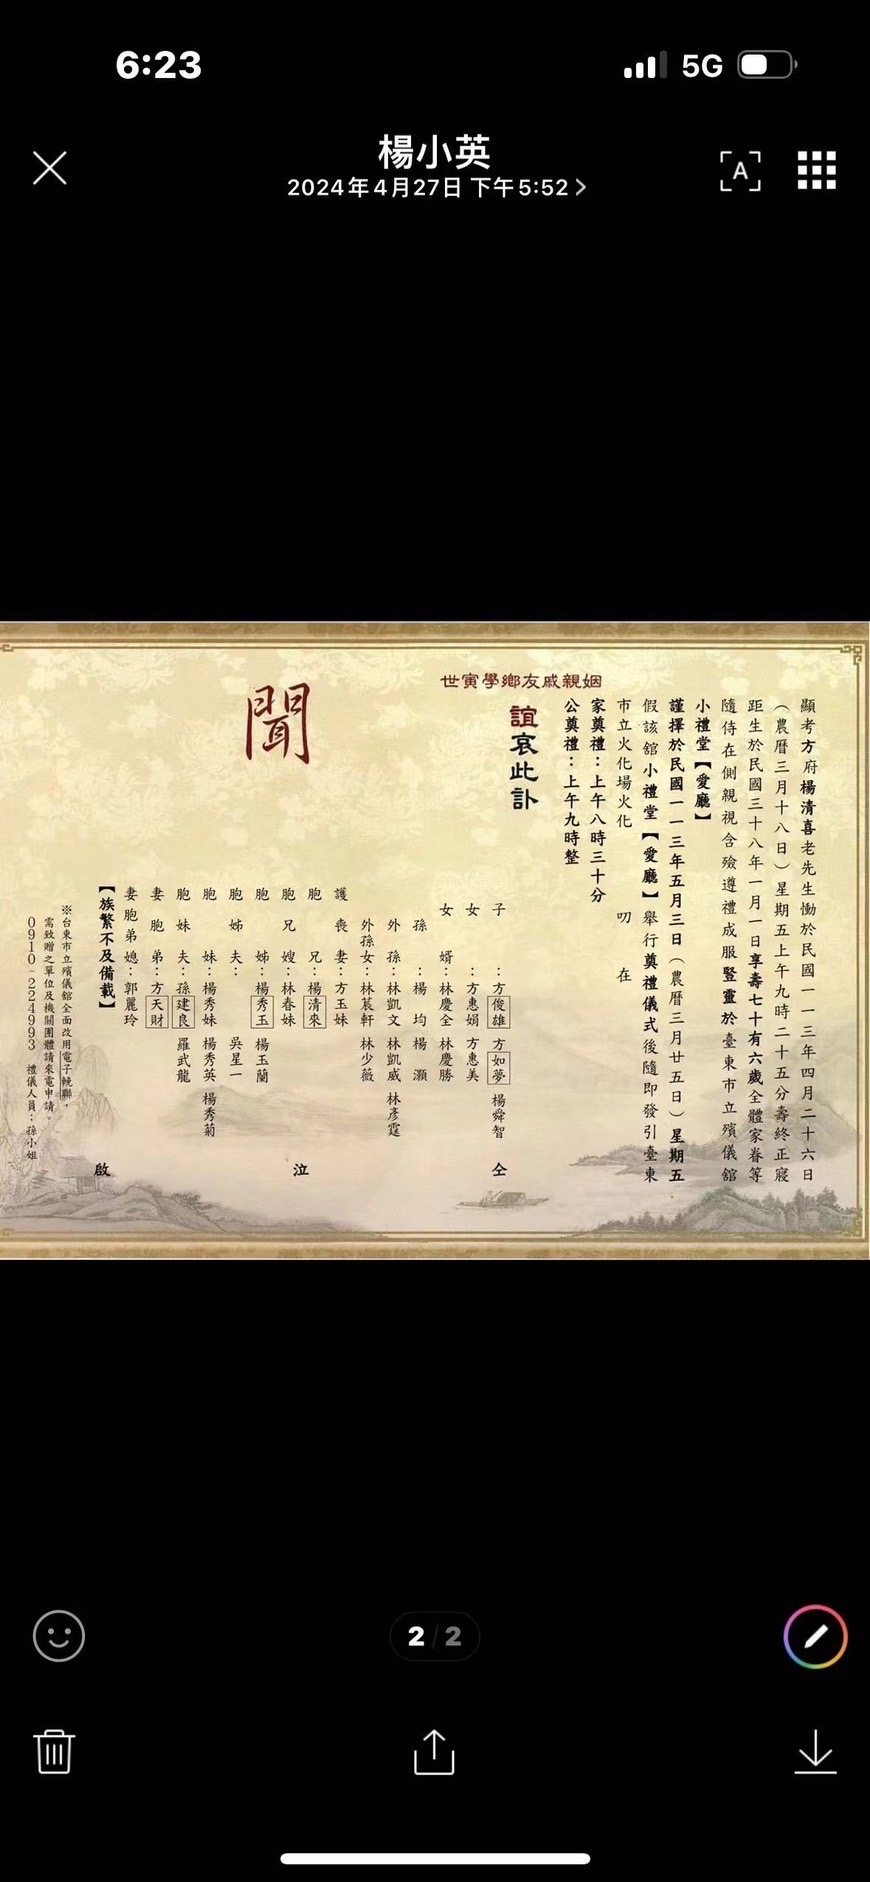 6:23
5G
楊小英
2024年4月27日 下午5:52
A
顯考方府楊清喜老先生慟於民國一一三年四月二十六日
（農曆三月十八日）星期五上午九時二十五分壽終正寢
距生於民國三十八年一月一日享壽七十有六歲全體家眷等
隨侍在側親視含殮遵禮成服豎靈於臺東市立殯儀館
小禮堂【愛廳】
謹擇於民國一一三年五月三日（農曆三月廿五日）星期五
假該館小禮堂【愛廳】舉行奠禮儀式後隨即發引臺東
市立火化場火化 叨 在
家奠禮：上午八時三十分
公奠禮：上午九時整
世寅學鄉友戚親姻
誼哀此訃
聞
子：方俊雄 方如夢 楊舜智
女：方惠娟 方惠美
女婿：林慶全 林慶勝
孫：楊均 楊灝
外孫：林凱文 林凱威 林彥霆
外孫女：林莀軒 林少薇
護喪妻：方玉妹
胞兄：楊清來
胞兄嫂：林春妹
胞姊：楊秀玉 楊玉蘭
胞姊夫：吳星一
胞妹：楊秀妹 楊秀英 楊秀菊
胞妹夫：孫建良 羅武龍
妻胞弟：方天財
妻胞弟媳：郭麗玲
仝 泣 啟
【族繁不及備載】
※台東市立殯儀館全面改用電子輓聯，
需致贈之單位及機關團體請來電申請。
0910-224993 禮儀人員：孫小姐
2/2